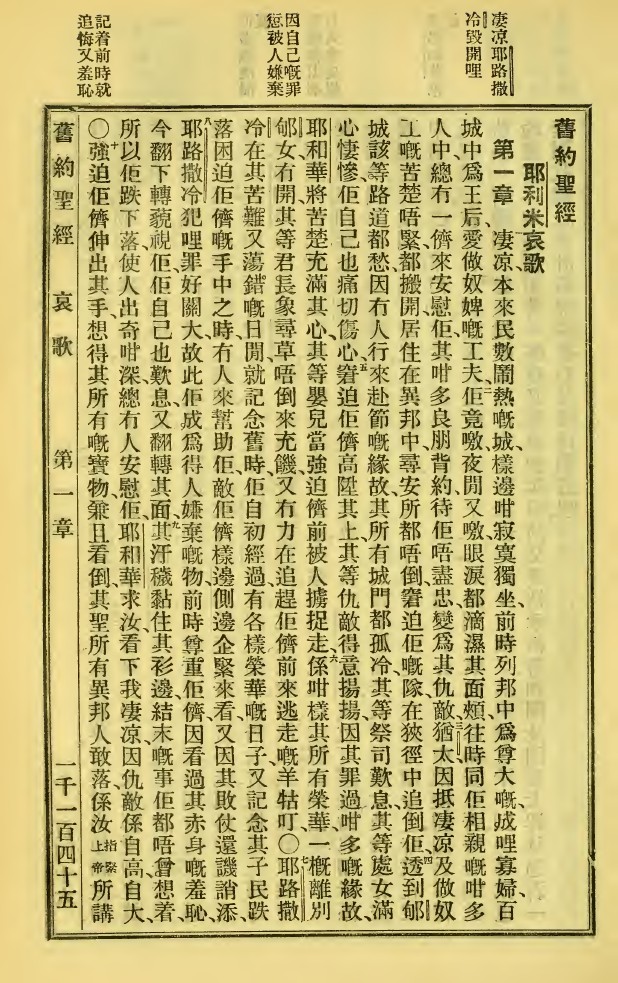 凄凉耶路撒
冷毀開哩
因自己嘅罪
愆被人嫌棄
記着前時就
追悔又羞恥
舊約聖經
耶利米哀歌
第一章 凄凉、本來民數鬧熱嘅城、樣邊咁寂寞獨坐、前時列邦中爲尊大嘅、成哩寡婦、百
城中爲王后、愛做奴婢嘅工夫、二佢竟噭、夜間又噭、眼淚都滴濕其面頰、往時同佢相親嘅咁多
人中、總冇一儕來安慰佢、其咁多良朋、背約待佢唔盡忠、變爲其仇敵、三猶太因抵凄凉、及做奴
工嘅苦楚唔緊、都搬開居住在異邦中、尋安所都唔倒、窘迫佢嘅隊、在狹徑中追倒佢、四透到郇
城該等路道都愁、因冇人行來赴節嘅緣故、其所有城門都孤冷、其等祭司歎息、其等處女滿
心悽慘、佢自己也痛切傷心、五窘迫佢儕高陞其上、其等仇敵得意揚揚、因其罪過咁多嘅緣故、
耶和華將苦楚充滿其心、其等嬰兒當強迫儕前、被人擄捉走、六係咁樣其所有榮華、一概離別
郇女有開、其等君長象尋草唔倒來充饑、又冇力在追趕佢儕前來逃走嘅羊牯叮、〇七耶路撒
冷在其苦難、又蕩錯嘅日間、就記念舊時、佢自初經過有各樣榮華嘅日子、又記念其子民跌
落困迫佢儕嘅手中之時、冇人來幫助佢、敵佢儕樣邊側邊企緊來看、又因其敗仗還譏誚添、
八耶路撒冷犯哩罪好關大、故此佢成爲得人嫌棄嘅物、前時尊重佢儕、因看過其赤身嘅羞恥、
今翻下轉藐視佢、佢自己也歎息、又翻轉其面、九其汙穢黏住其衫邊、結末嘅事佢都唔曾想着、
所以佢跌下落使人出奇咁深、總冇人安慰佢、耶和華求汝看下我凄凉、因仇敵係自高自大、
〇十強迫佢儕伸出其手、想得其所有嘅寶物、兼且看倒其聖所有異邦人敢落、係汝指緊上帝所講
舊約聖經 哀歌 第一章 一千一百四十五